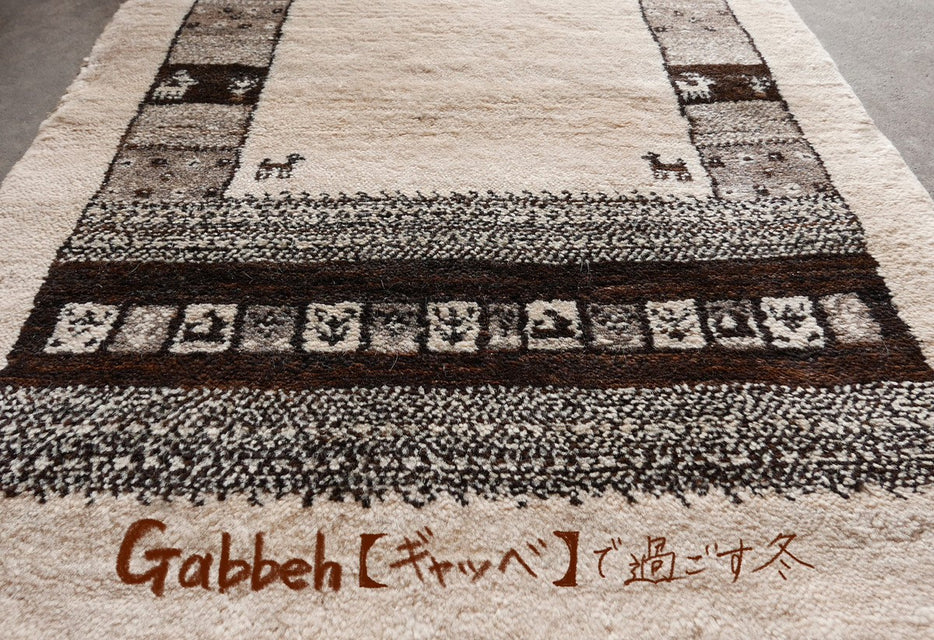 Gabbeh【ギャッベ】で過ごす冬